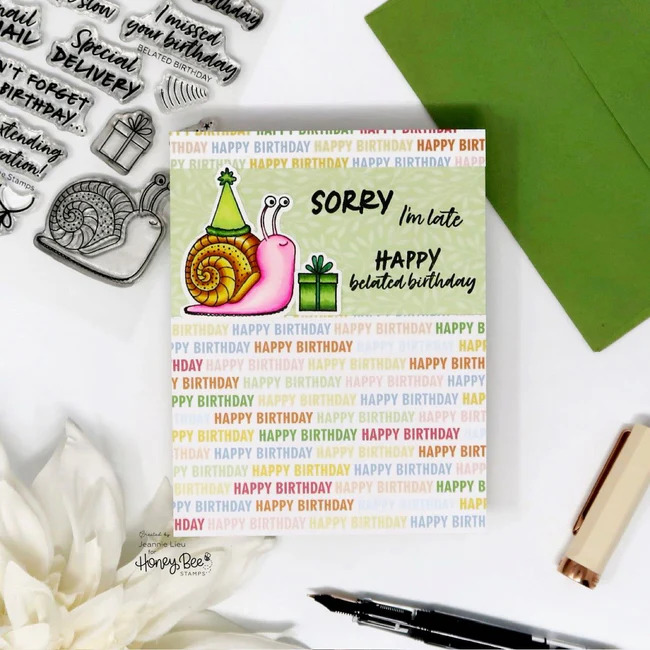 slow
MAIL
Special
DELIVERY
I missed
your birthday
BELATED BIRTHDAY
FORGET
BIRTHDAY...
Stamps
HAPPY BIRTHDAY HAPPY BIRTHDAY
HAPPY BIRTHDAY HAPPY BIRTHDAY HAPPY BIRT
BIRTHDAY HAPPY BIRTHDAY HAPPY BIRTHDAY
SORRY
I'm late
HAPPY
belated birthday
BIRTHDAY HAPPY BIRTHDAY HAPPY BIRTHDAY HAPPY B
PY BIRTHDAY HAPPY BIRTHDAY HAPPY BIRTHDAY HAPP
HDAY HAPPY BIRTHDAY HAPPY BIRTHDAY HAPPY BIRTH
PPY BIRTHDAY HAPPY BIRTHDAY HAPPY BIRTHDAY HAPPY
BIRTHDAY HAPPY BIRTHDAY HAPPY BIRTHDAY HAPPY B
HAPPY BIRTHDAY HAPPY BIRTHDAY HAPPY BIRT
PY BIRTHDAY HAPPY BIRTHDAY HAPPY BIRTHDAY
BIRTHDAY HAPPY BIRTHDAY HAPPY BIRTHDAY HAPPY BI
PY BIRTHDAY HAPPY BIRTHDAY HAPPY BIRTHDAY HAPP
BIRTHDAY HAPPY BIRTHDAY HAPPY BIRTHDAY HAPPY B
PY BIRTHDAY HAPPY BIRTHDAY HAPPY BIRTHDAY HAPP
HDAY HAPPY BIRTHDAY HAPPY BIRTHDAY HAPPY BIRTH
Created by
Jeannie Lieu
for
Honey Bee
STAMPS